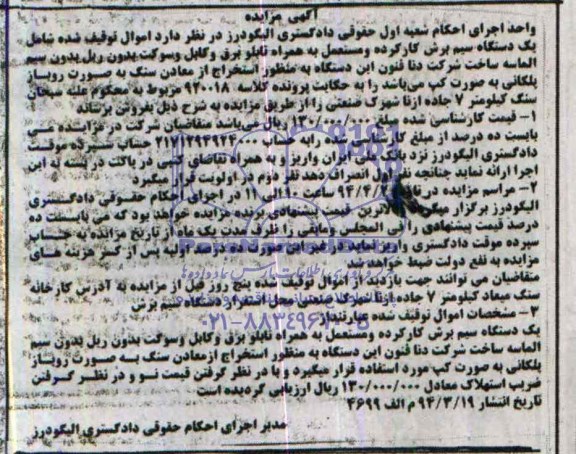 آگهی مزایده
واحد اجرای احکام شعبه اول حقوقی دادگستری الیگودرز در نظر دارد اموال توقیف شده شامل
یک دستگاه سیم برش کارکرده ومستعمل به همراه تابلو برق وکابل وسوکت بدون ریل بدون سیم
الماسه ساخت شرکت دنا فنون این دستگاه به منظور استخراج از معادن سنگ به صورت روباز
پلکانی به صورت کپ می‌باشد را به حکایت پرونده کلاسه ۹۲۰۰۱۸ مربوط به محکوم علیه
سنگ کیلومتر ۷ جاده ازنا شهرک صنعتی را از طریق مزایده به شرح ذیل بفروش برساند
۱- قیمت کارشناسی شده مبلغ ۱۳۰/۰۰۰/۰۰۰ ریال می‌باشد متقاضیان شرکت در مزایده می
بایست ده درصد از مبلغ کارشناسی شده رابه حساب حساب سپرده موقت
دادگستری الیگودرز نزد بانک ملی ایران واریز و به همراه تقاضای کتبی در پاکت در بسته به این
اجرا ارائه نماید چنانچه نفر اول انصراف دهد نفر دوم در اولویت قرار میگیرد
۲- مراسم مزایده در ساعت ۱۰ در اجرای احکام حقوقی دادگستری
الیگودرز برگزار قیمت پیشنهادی برنده مزایده خواهد بود که می بایست ده
درصد قیمت پیشنهادی را فی المجلس ومابقی را ظرف مدت یک ماه از تاریخ مزایده به حساب
سپرده موقت دادگستری واریز نماید در غیر این صورت ده درصد اولیه پس از کسر هزینه های
مزایده به نفع دولت ضبط خواهد شد
متقاضیان می توانند جهت بازدید از اموال توقیف شده پنج روز قبل از مزایده به آدرس کارخانه
سنگ میعاد کیلومتر ۷ جاده ازنا شهرک صنعتی محل استقرار دستگاه سیم برش
۳- مشخصات اموال توقیف شده عبارتنداز
یک دستگاه سیم برش کارکرده ومستعمل به همراه تابلو برق وکابل وسوکت بدون ریل بدون سیم
الماسه ساخت شرکت دنا فنون این دستگاه به منظور استخراج ازمعادن سنگ به صورت روباز
پلکانی به صورت کپ مورد استفاده قرار میگیرد و با در نظر گرفتن قیمت نو و در نظر گرفتن
ضریب استهلاک معادل ۱۳۰/۰۰۰/۰۰۰ ریال ارزیابی گردیده است
تاریخ انتشار ۹۴/۳/۱۹ م الف ۴۶۹۹
مدیر اجرای احکام حقوقی دادگستری الیگودرز